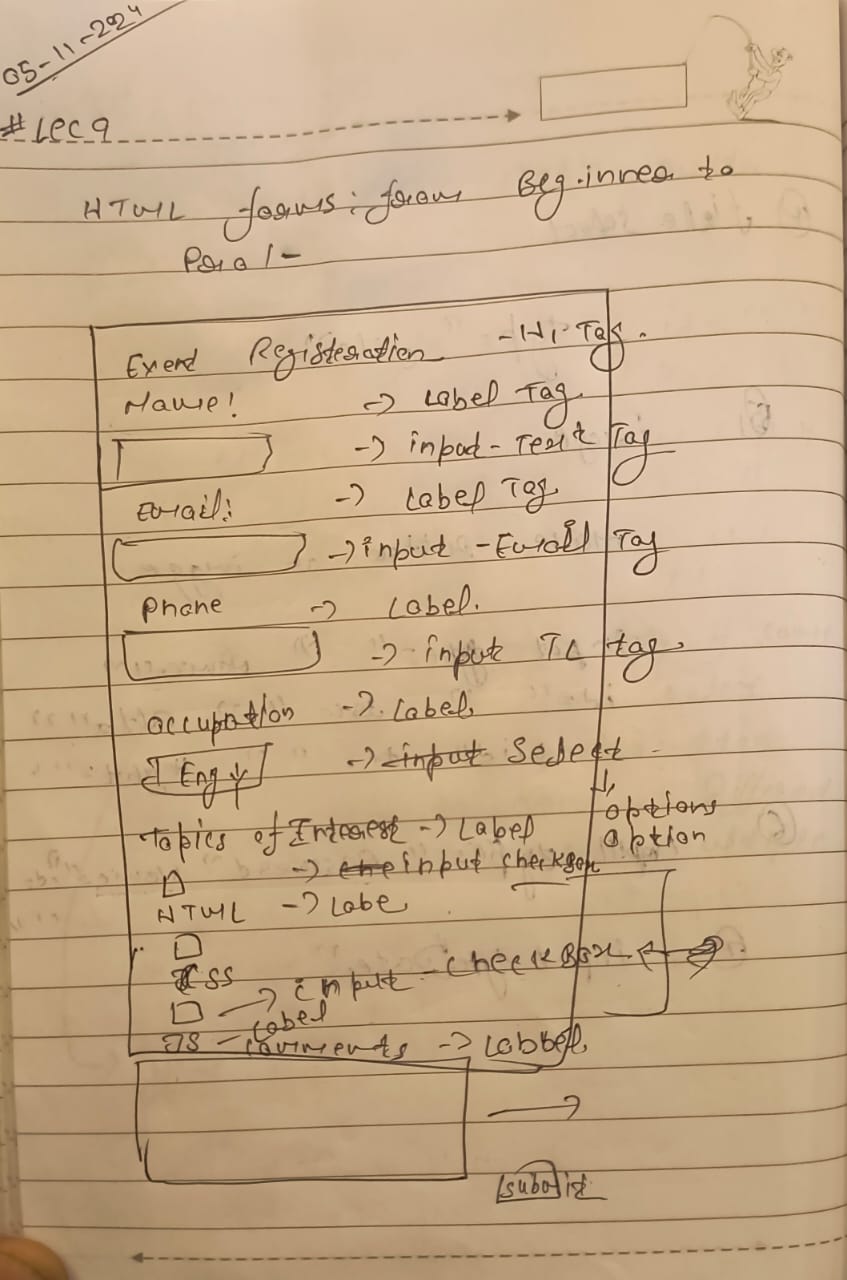 05-11-2024
#Lec 9
HTML forms: from Beginner to
Pro!-
Event Registeration - H1-Tag.
Name! -> Label Tag
-> input - Text Tag
Email: -> Label Tag
-> input - Email Tag
Phone -> Label.
-> input Tel tag
occupation -> Label
Eng -> input Select
options
Topics of Interest -> Label option
-> che input checkbox
HTML -> Labe
CSS input - check Box
Label
JS - comments -> Labbel
submit